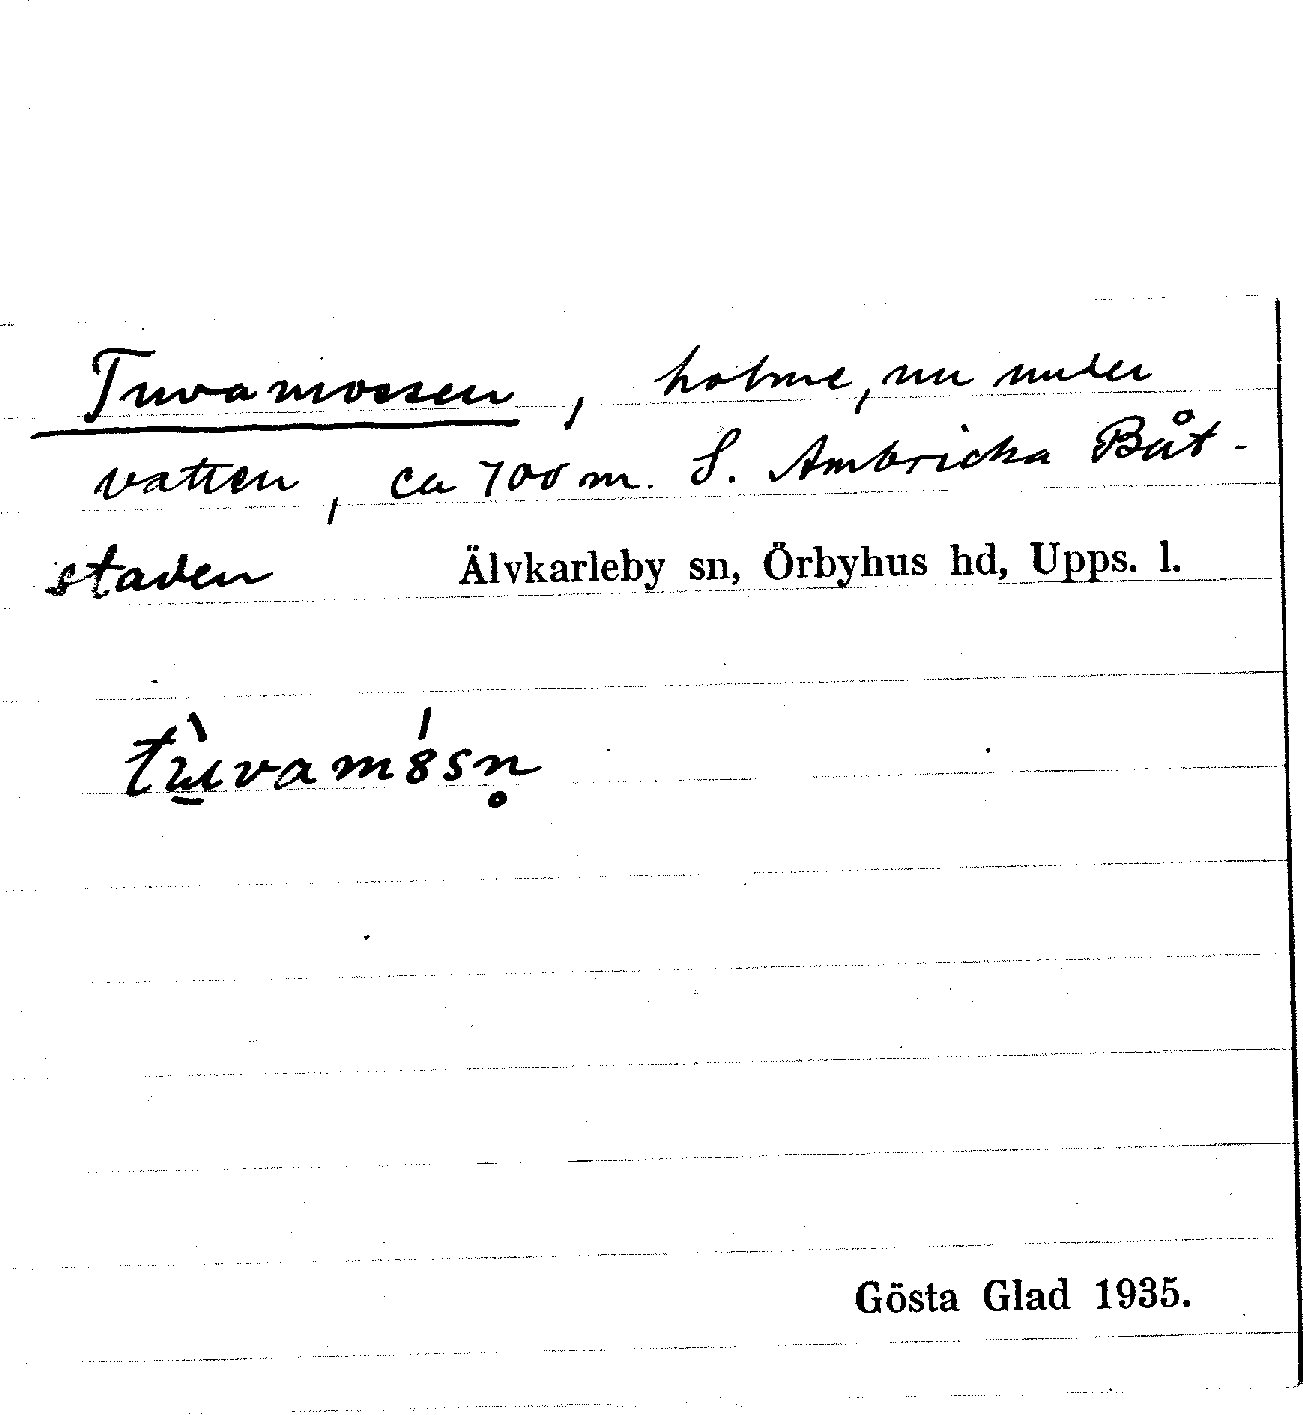 Tuvamossen, holme, nu under
vatten, ca 700 m. S. Ambricka Båt-
staden Älvkarleby sn, Örbyhus hd, Upps. l.
tù̠vamȣ́sn̥
Gösta Glad 1935.